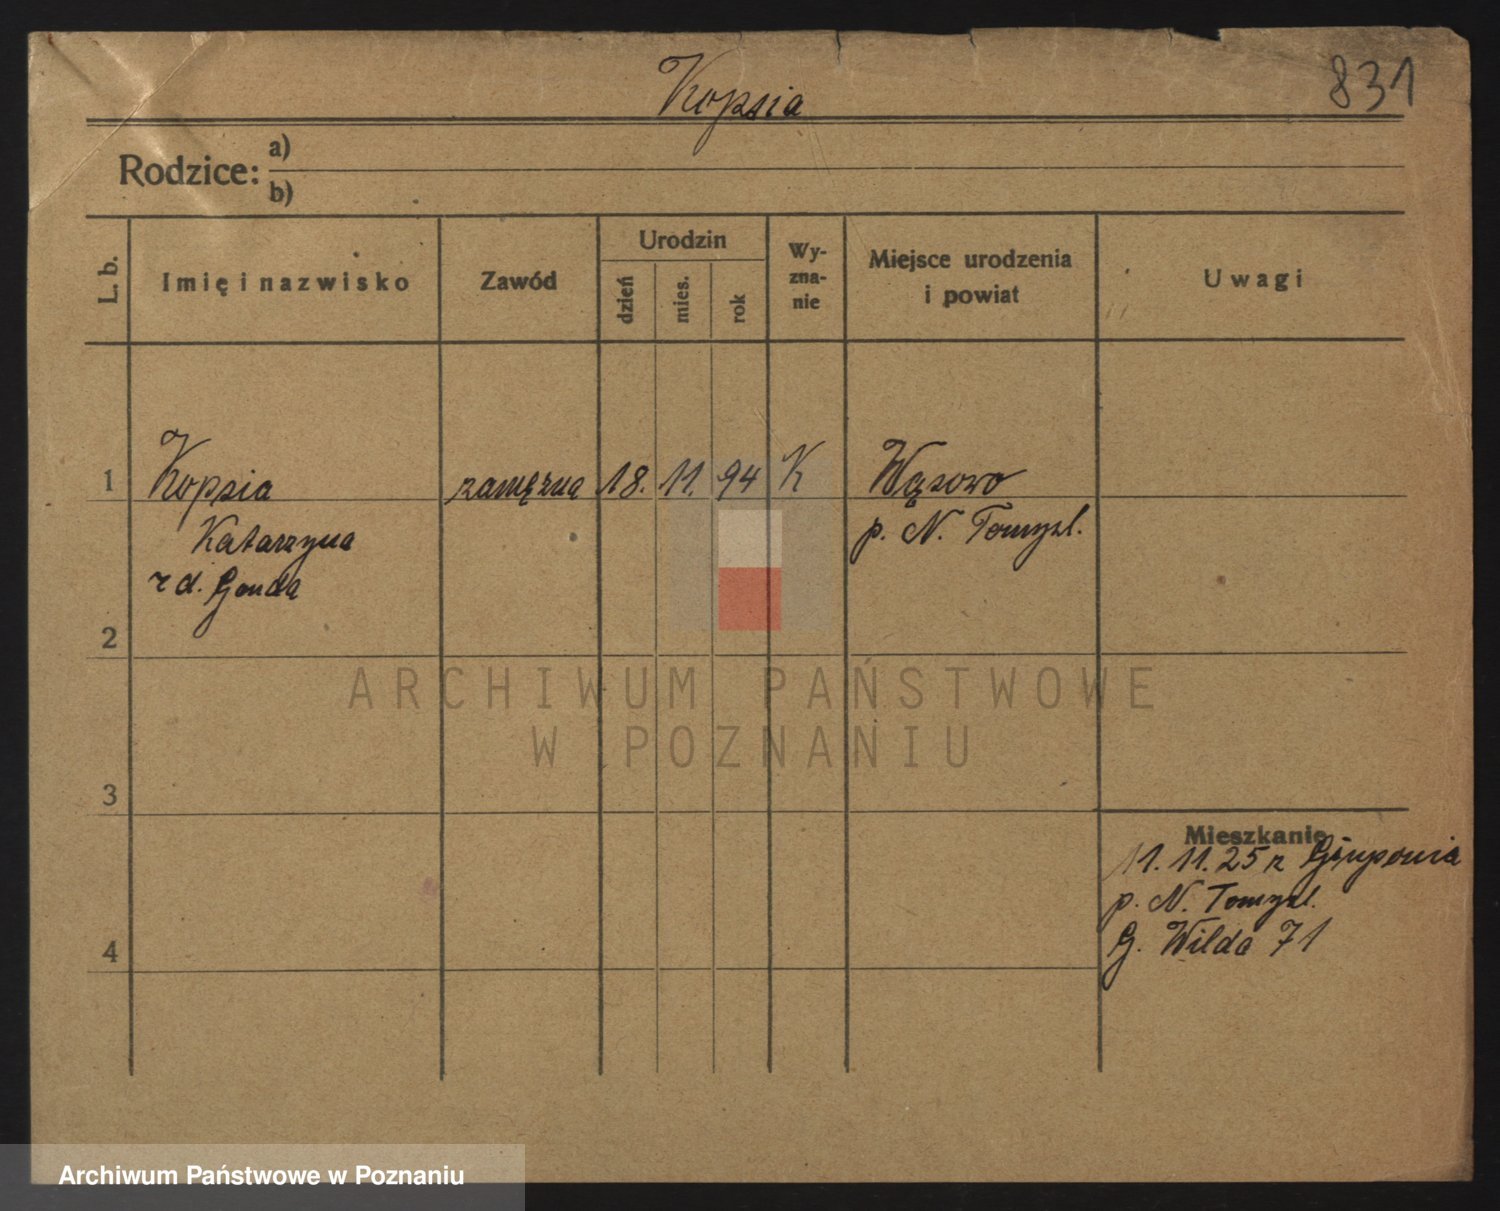 Kopsia
831
Rodzice: a)
b)
L. b.
Imię i nazwisko
Zawód
Urodzin
dzień
mies.
rok
Wy-
zna-
nie
Miejsce urodzenia
i powiat
Uwagi
1 Kopsia zamężna 18. 11. 94 K Wąsowo
Katarzyna p. N. Tomyśl.
z d. Gonda
2
ARCHIWUM PAŃSTWOWE
W POZNANIU
3
Mieszkanie
11. 11. 25 z
p. N. Tomyśl.
G. Wilda 71
4
Archiwum Państwowe w Poznaniu